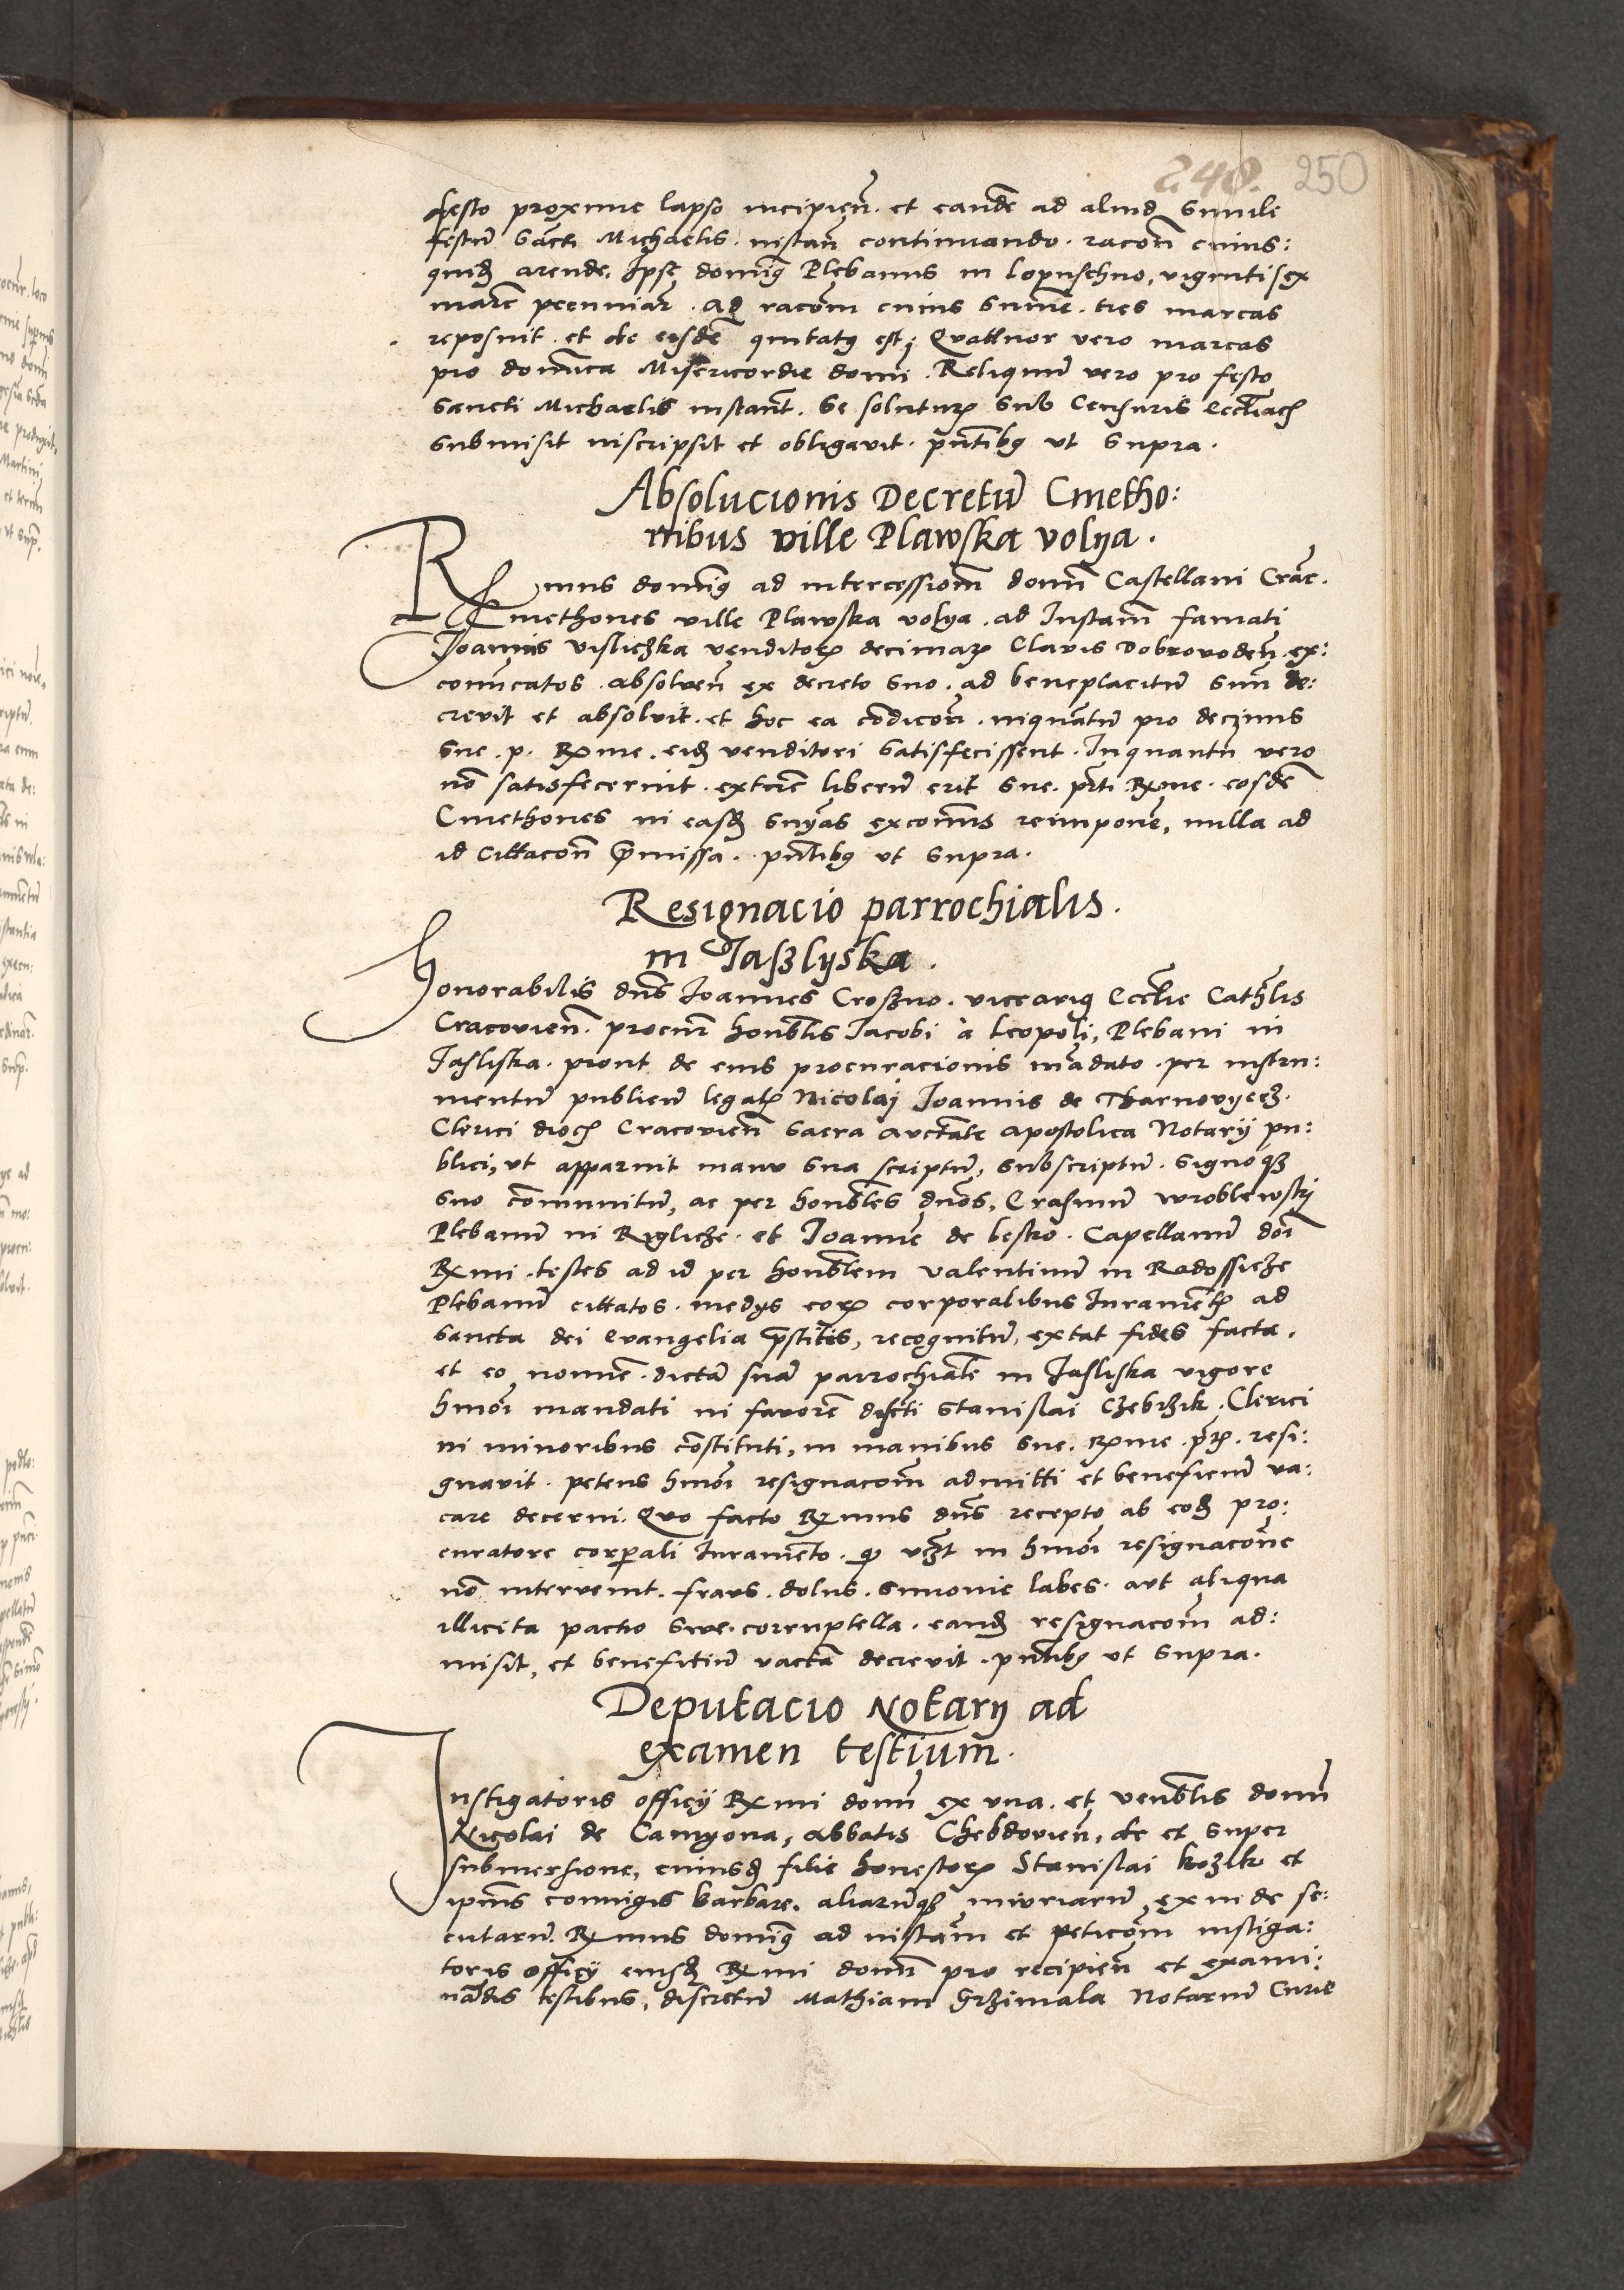 248. 250
festo proxime lapso incipien̄. et eandē ad aliud simile
festū Sancti Michaelis. instan̄ continuando. racoñ cuius:
quid̄ arende. Ipse dominꝯ Plebanus in Lopuschno, vigintisex
marc̄ pecuniar̄. Ad racom̄ cuius sum̄e. tres marcas
reposuit. et de eisdē quitatꝯ est; Quattuor vero marcas
pro dominica Misericordie domi. Reliquū vero pro festo
Sancti Michaelis instant̄. se soluturꝝ sub Censuris Eccl̄iach̄
submisit inscripsit et obligavit. pn̄tibꝯ ut supra.
Absolucionis Decretū Cmetho:
nibus ville Plawska volya.
Rx̄mus dominꝯ ad intercessiom̄ domn̄ Castellani Crac̄.
Cmethones ville Plawska volya. ad Instam̄ famati
Joannis Vislichka venditorꝝ decimarꝝ Clavis Dobrovoden̄. ex:
com̄catos. absolven̄ ex decreto suo. ad beneplacitū suū de:
crevit et absolvit. et hoc ea cōdicoñ. inquantū pro decimis
sue. p. Rx̄me. eid̄ venditori satisfecissent. Inquantū vero
nō satisfecerint. extunc̄ liberū erit sue. pr̄ti Rx̄me. eosdē
Cmethones in easd̄ sn̄ias excom̄nis reimponē, nulla ad
id Cittacoñ p̄missa. pn̄tibꝯ ut supra.
Resignacio parrochialis.
in Jaszlyska.
Honorabilis dn̄s Joannes Croszno. vicariꝯ Eccl̄ie Cath̄lis
Cracovien̄. procur̄ honbl̄is Jacobi a Leopoli, Plebani in
Jasliska. prout de eius procuracionis mādato. per instru:
mentū publicū legatꝝ Nicolai Joannis de Tharnovyecz.
Clerici dioc̄ Cracovien̄ sacra auctate apostolica Notarij pu:
blici, ut apparuit manu sua scriptū, subscriptū. signoqꝫ
suo cōmunitū, ac per honbl̄es dn̄os, Erasmū Wroblewskj
Plebanū in Rigliche. et Joannē de Lesko. Capellanū doī
Rx̄mi. testes ad id per honbl̄em Valentinū in Radossicze
Plebanū cittatos. medijs eorꝝ corporalibus Juramentꝝ ad
sancta dei Evangelia p̄stitis, recognitū, extat fides facta.
et eo nomīe. dictā suā parrochialē in Jasliska vigore
hmōi mandati in favorē discti Stanislai Czebrzik. Clerici
in minoribus cōstituti, in manibus sue. Rx̄me. pr̄. resi:
gnavit. petens hmōi resignacom̄ admitti et beneficiū va:
care decerni. Quo facto Rx̄mus dn̄s recepto ab eod̄ pro:
curatore corꝑali Juramento. qꝫ vꝫt in hmōi resignacōne
nō intervenit. fraus. dolus. simonie labes. aut aliqua
illicita pactio sive. corruptella. eand̄ resignacom̄ ad:
misit, et benefitiū vacta decrevit. pn̄tibꝯ ut supra.
Deputacio Notarij ad
examen testium.
Instigatoris officij Rx̄mi domn̄ ex una. et venbl̄is domn̄
Nicolai de Camyona, abbatis Chebdovien̄, de et super
submersione, cuiusd̄ filie honestorꝝ Stanislai Kozlk et
ipīus coniugis Barbare. aliarūqꝫ iniuriarū, exinde se:
cutarū. Rx̄mus dominꝯ ad instam̄ et peticōm instiga:
toris officij eiusd̄ Rx̄mi domn̄ pro recipien̄ et exami:
nādis testibus, discretū Mathiam Grzimala Notariū Curie